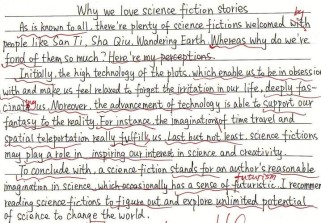 Why we love science fiction stories
As is known to all, there're plenty of science fictions welcomed with by
people like San Ti, Sha Qiu, Wandering Earth. Whereas why do we're
fond of them so much? Here're my perceptions.
Initially, the high technology of the plots, which enable us to be in obsession
with and make us feel relaxed to forget the irritation in our life, deeply fas-
cinat us. Moreover, the advancement of technology is able to support our
fantasy to the reality. For instance, the imagination of time travel and
spatial teleportation really fulfills us. Last but not least, science fictions
may play a role in inspiring our interest in science and creativity.
To conclude with, a science fiction stands for an author's reasonable
futurism
imagination in science, which occasionally has a sense of futuristic. I recommend
reading science fictions to figure out and explore unlimited potential
of science to change the world.